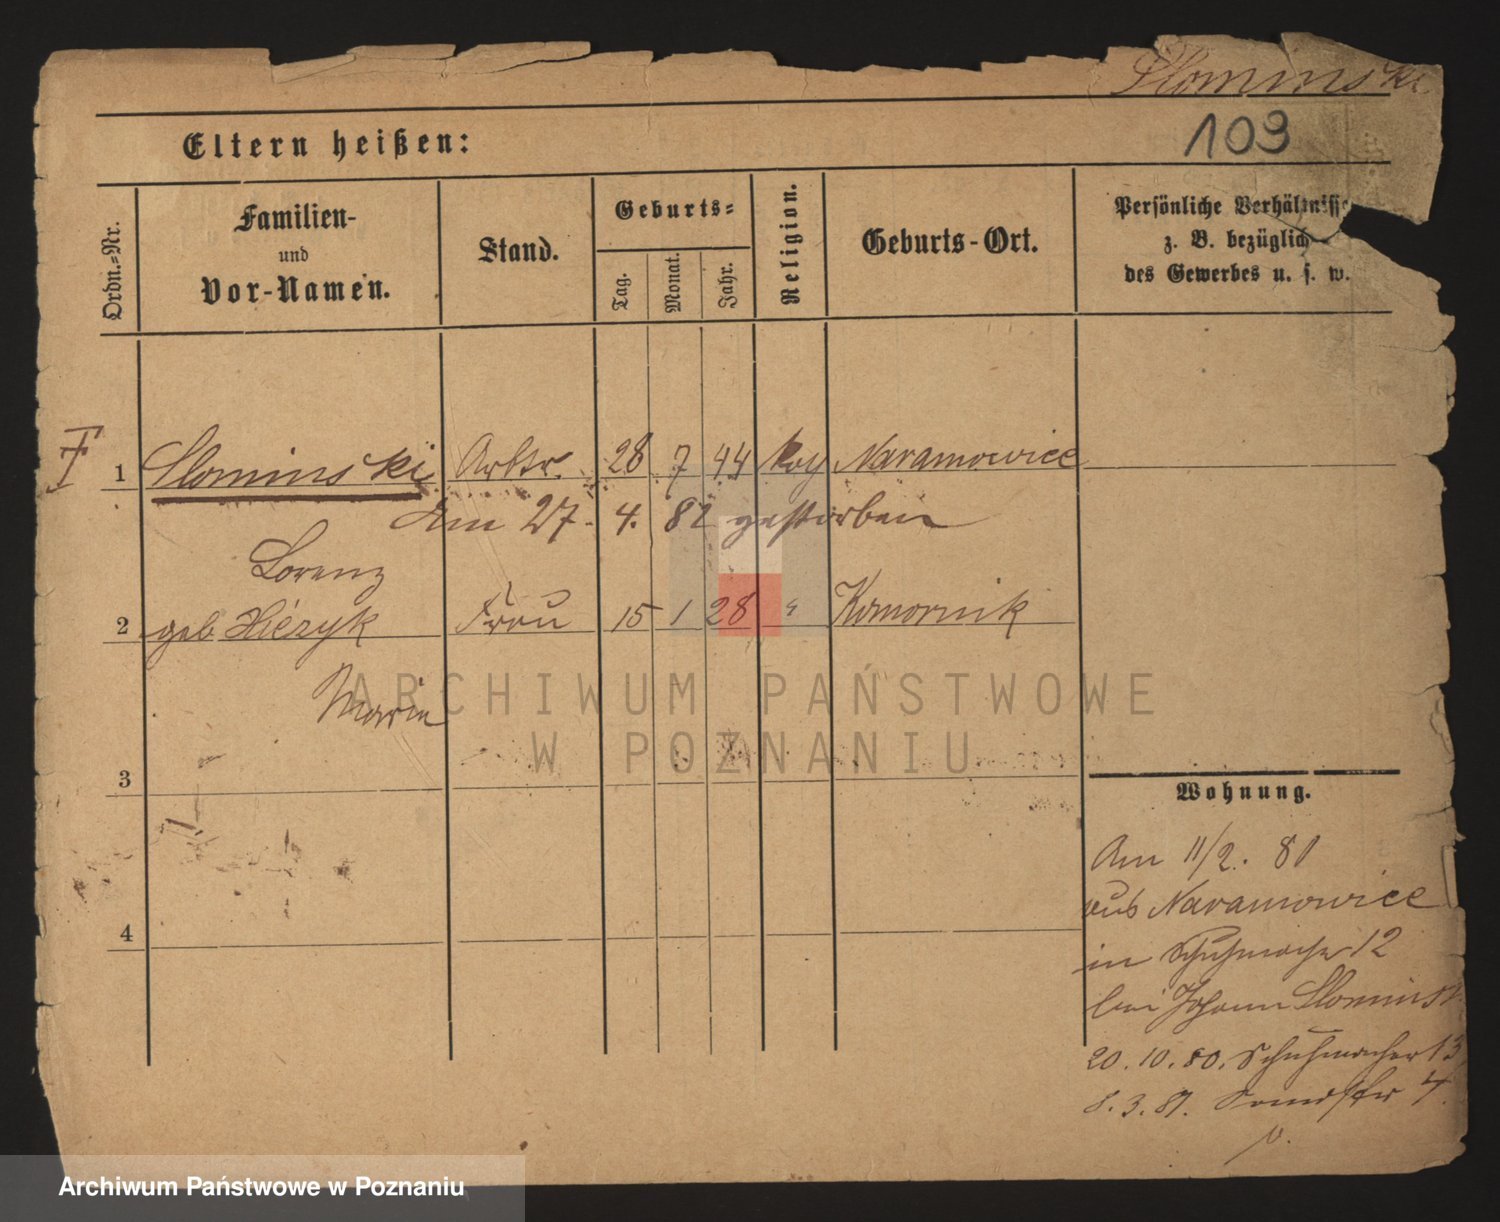 Slominski
109
Eltern heißen:
Ordn.=Nr.
Familien-
und
Vor-Namen.
Stand.
Geburts=
Tag.
Monat.
Jahr.
Religion.
Geburts-Ort.
Persönliche Verhältnisse
z. B. bezüglich
des Gewerbes u. s. w.
1 Slominski Arbtr. 28 7 44 Naramowice
Am 27. 4. 82 gestorben
Lorenz
2 geb Frau 15 1 28 " Komornik
Marie
3
4
Wohnung.
Am 11/2. 81
aus Naramowice
in Schuhmacher 12
bei Johann Slominsk
20. 10. 80. Schuhmacher 13
8. 3. 81. 4.
ARCHIWUM PAŃSTWOWE
W POZNANIU
Archiwum Państwowe w Poznaniu